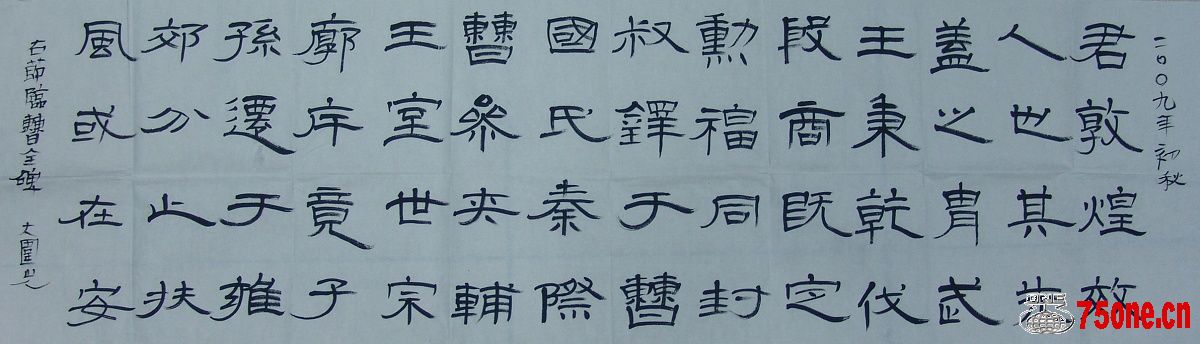 二〇〇九年初秋
君敦煌效
人也其先
蓋周之胄武
王秉乾伐
段商既定
勳福同封
叔鐸于曹
國氏秦際
曹參夾輔
王室世宗
廓斥竟子
孫遷于雍
郊分止扶
風或在安
右節臨曹全碑
75one.cn